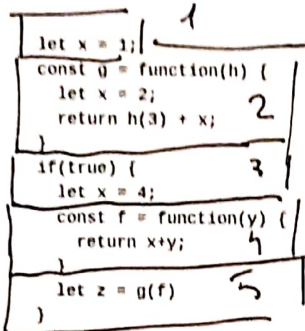 1
let x = 1;
const g = function(h) {
let x = 2;
return h(3) + x;
2
}
if(true) {
3
let x = 4;
const f = function(y) {
return x+y;
4
}
let z = g(f)
5
}